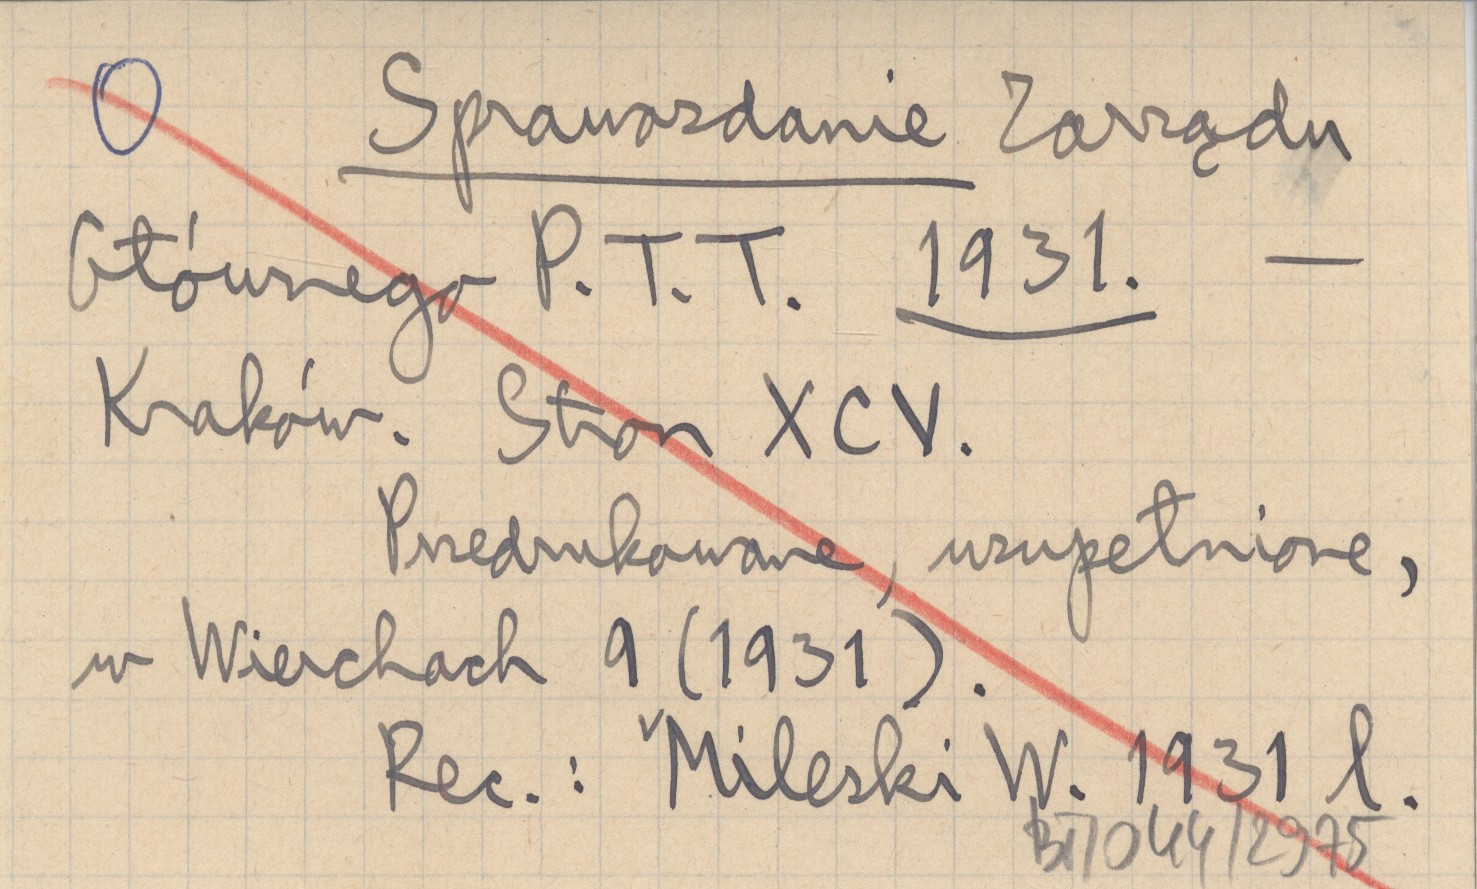 O Sprawozdanie Zarządu
Głównego P.T.T. 1931. —
Kraków. Stron XCV.
Przedrukowane, uzupełnione,
w Wierchach 9 (1931).
Rec.: Mileski W. 1931 l.
BT/044/2975